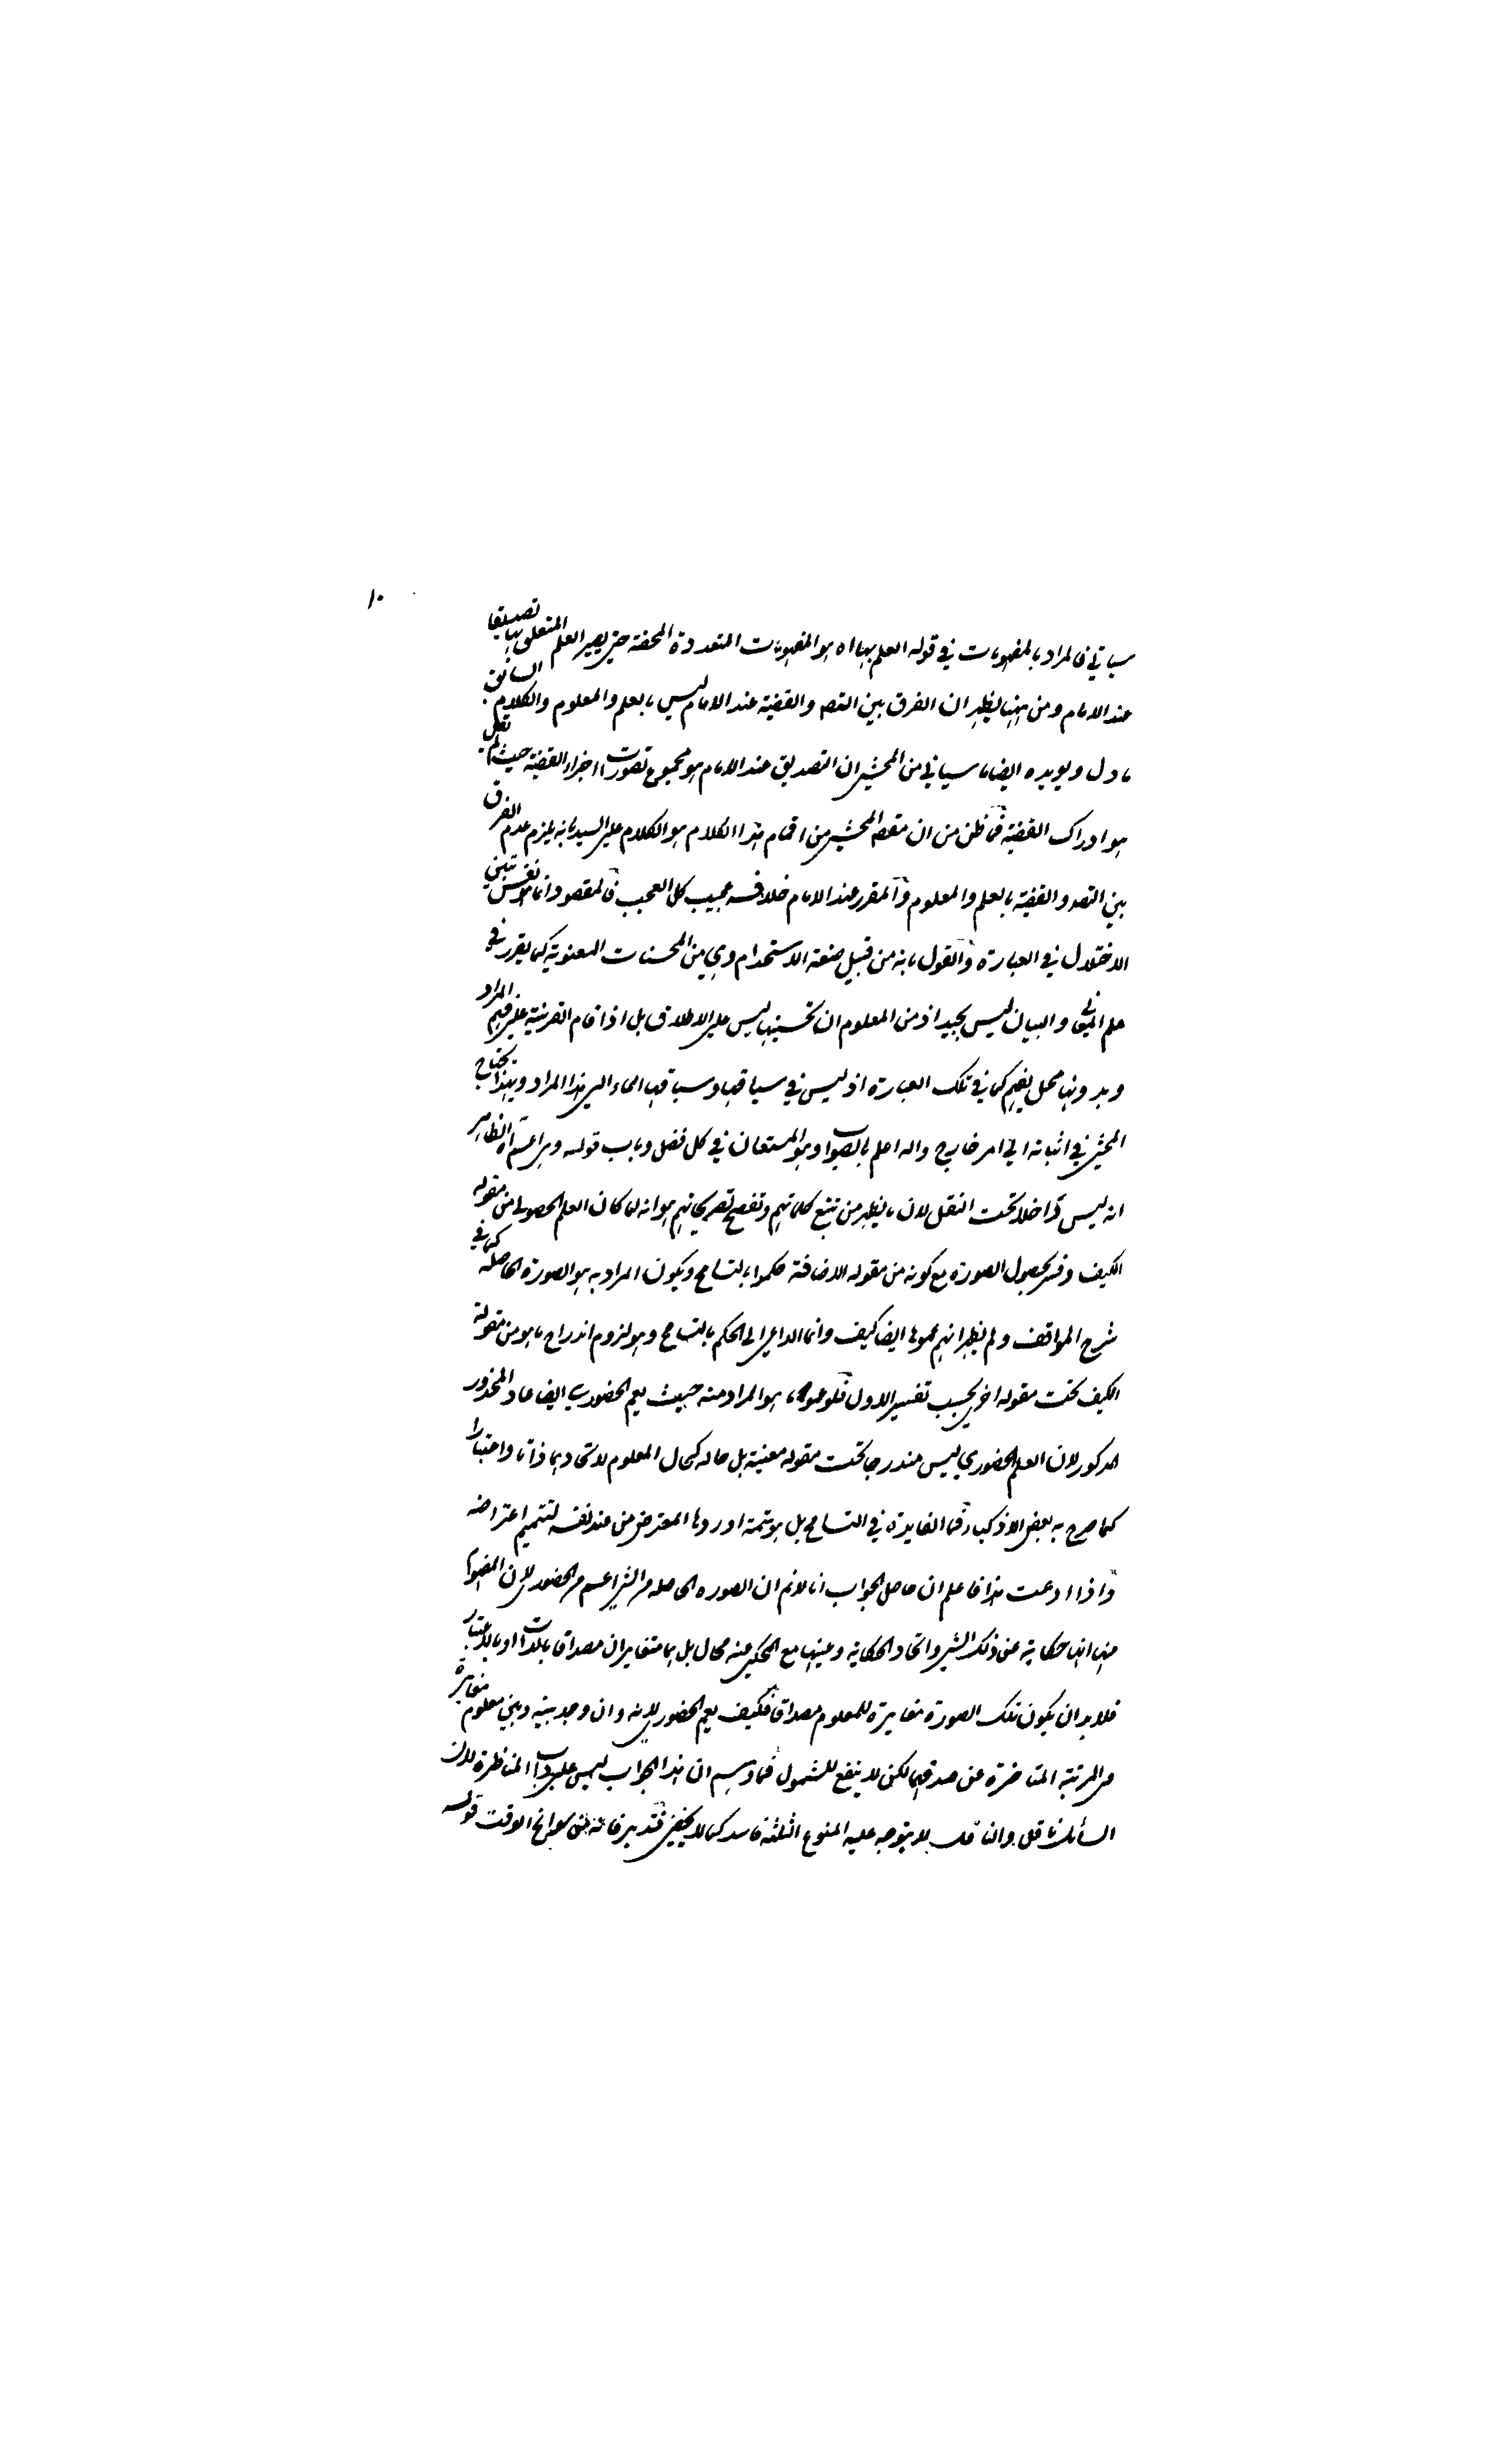 ١٠
سياتي فالمراد بالمفهومات في قوله العلم بها اه هو المفهومات المتعددة المحضة حتى يصير العلم المتعلق بها تصديقا
عند الامام ومن ههنا يظهر ان الفرق بين التصـ والقضية عند الامام ليس بالعلم والمعلوم والكلام السابق
مادل ويويده ايضا ما سياتي من المحشي ان التصديق عند الامام هو مجموع تصورات اجزاء القضية حيث لم يقل
هو ادراك القضية فما ظن من ان مقصـ المحشي من اقحام هذا الكلام هو الكلام على السيد بانه يلزم عدم الفرق
بين التصـ والقضية بالعلم والمعلوم والمقرر عند الامام خلافه عجيب كل العجب فالمقصود انما هو نفس تبين
الاختلال في العبارة والقول بانه من قبيل صنعة الاستخدام وهي من المحسنات المعنوية كما يقرر في
علم المعاني والبيان ليس بجيد اذ من المعلوم ان تحسينها ليس على الاطلاق بل اذا قام القرينة على فهم المراد
وبدونها محل بفهم كما في تلك العبارة اذ ليس في سياقها وسباقها ايماء الى هذا المراد ولهذا يحتاج
المحشي في اثباته الى امر خارج والله اعلم بالصواب وهو المستعان في كل فصل وباب قوله وهي اعم اه الظاهر
انه ليس داخلا تحت النقل لان ما يظهر من تتبع كلماتهم وتفصح تصريحاتهم هو انه لما كان العلم الحصولي من مقولة
الكيف وفسر بحصول الصورة مع كونه من مقولة الاضافة حكموا بالتسامح ويكون المراد به هو الصورة الحاصلة كما في
شرح المواقف ولم يظهر انهم عمموها ايضا كيف وانما الداعي الى الحكم بالتسامح وهو لزوم اندراج ما هو من مقولة
الكيف تحت مقولة اخرى بحسب تفسير الاول فلو عموا ما هو المراد منه حيث يعم الحضوري ايضا عاد المحذور
المذكور لان العلم الحضوري ليس مندرجا تحت مقولة معينة بل حاله كحال المعلوم لاتحادهما ذاتا واعتبارا
كما صرح به بعض الاذكياء فما الفايدة في التسامح بل هو تتمة اوردها المعترض من عند نفسه لتتميم اعتراضه
واذا دعت هذا فاعلم ان حاصل الجواب انا لا نم ان الصورة الحاصلة من الشي اعم من الحضوري لان المفهوم
منها انها حكاية عن ذلك الشي واتحاد الحكاية وعينها مع المحكي عنه محال بل هما متغايران مصداقا بالذات او بالاعتبار
فلابد ان يكون تلك الصورة مغايرة للمعلوم مصداقا فكيف يعم الحضوري لانه وان وجد بينه وبين معلومه مغايرة
في المرتبة المتاخرة عن صدقهما لكن لا ينفع للشمول فما وسم ان هذا الجواب ليس على داب المناظرة لان
السائل ناقل والناقل لا يتوجه عليه المنوع الثلثة فاسد كما لا يخفى فتدبر فانه من سوانح الوقت قوله